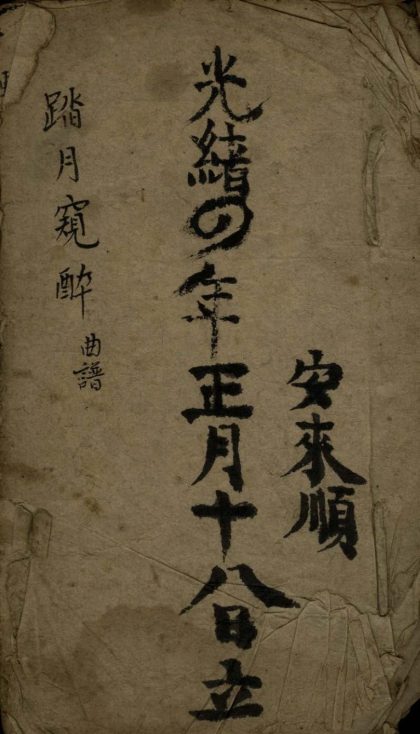 安來順
光緒四年正月十八日立
踏月窺醉
曲譜